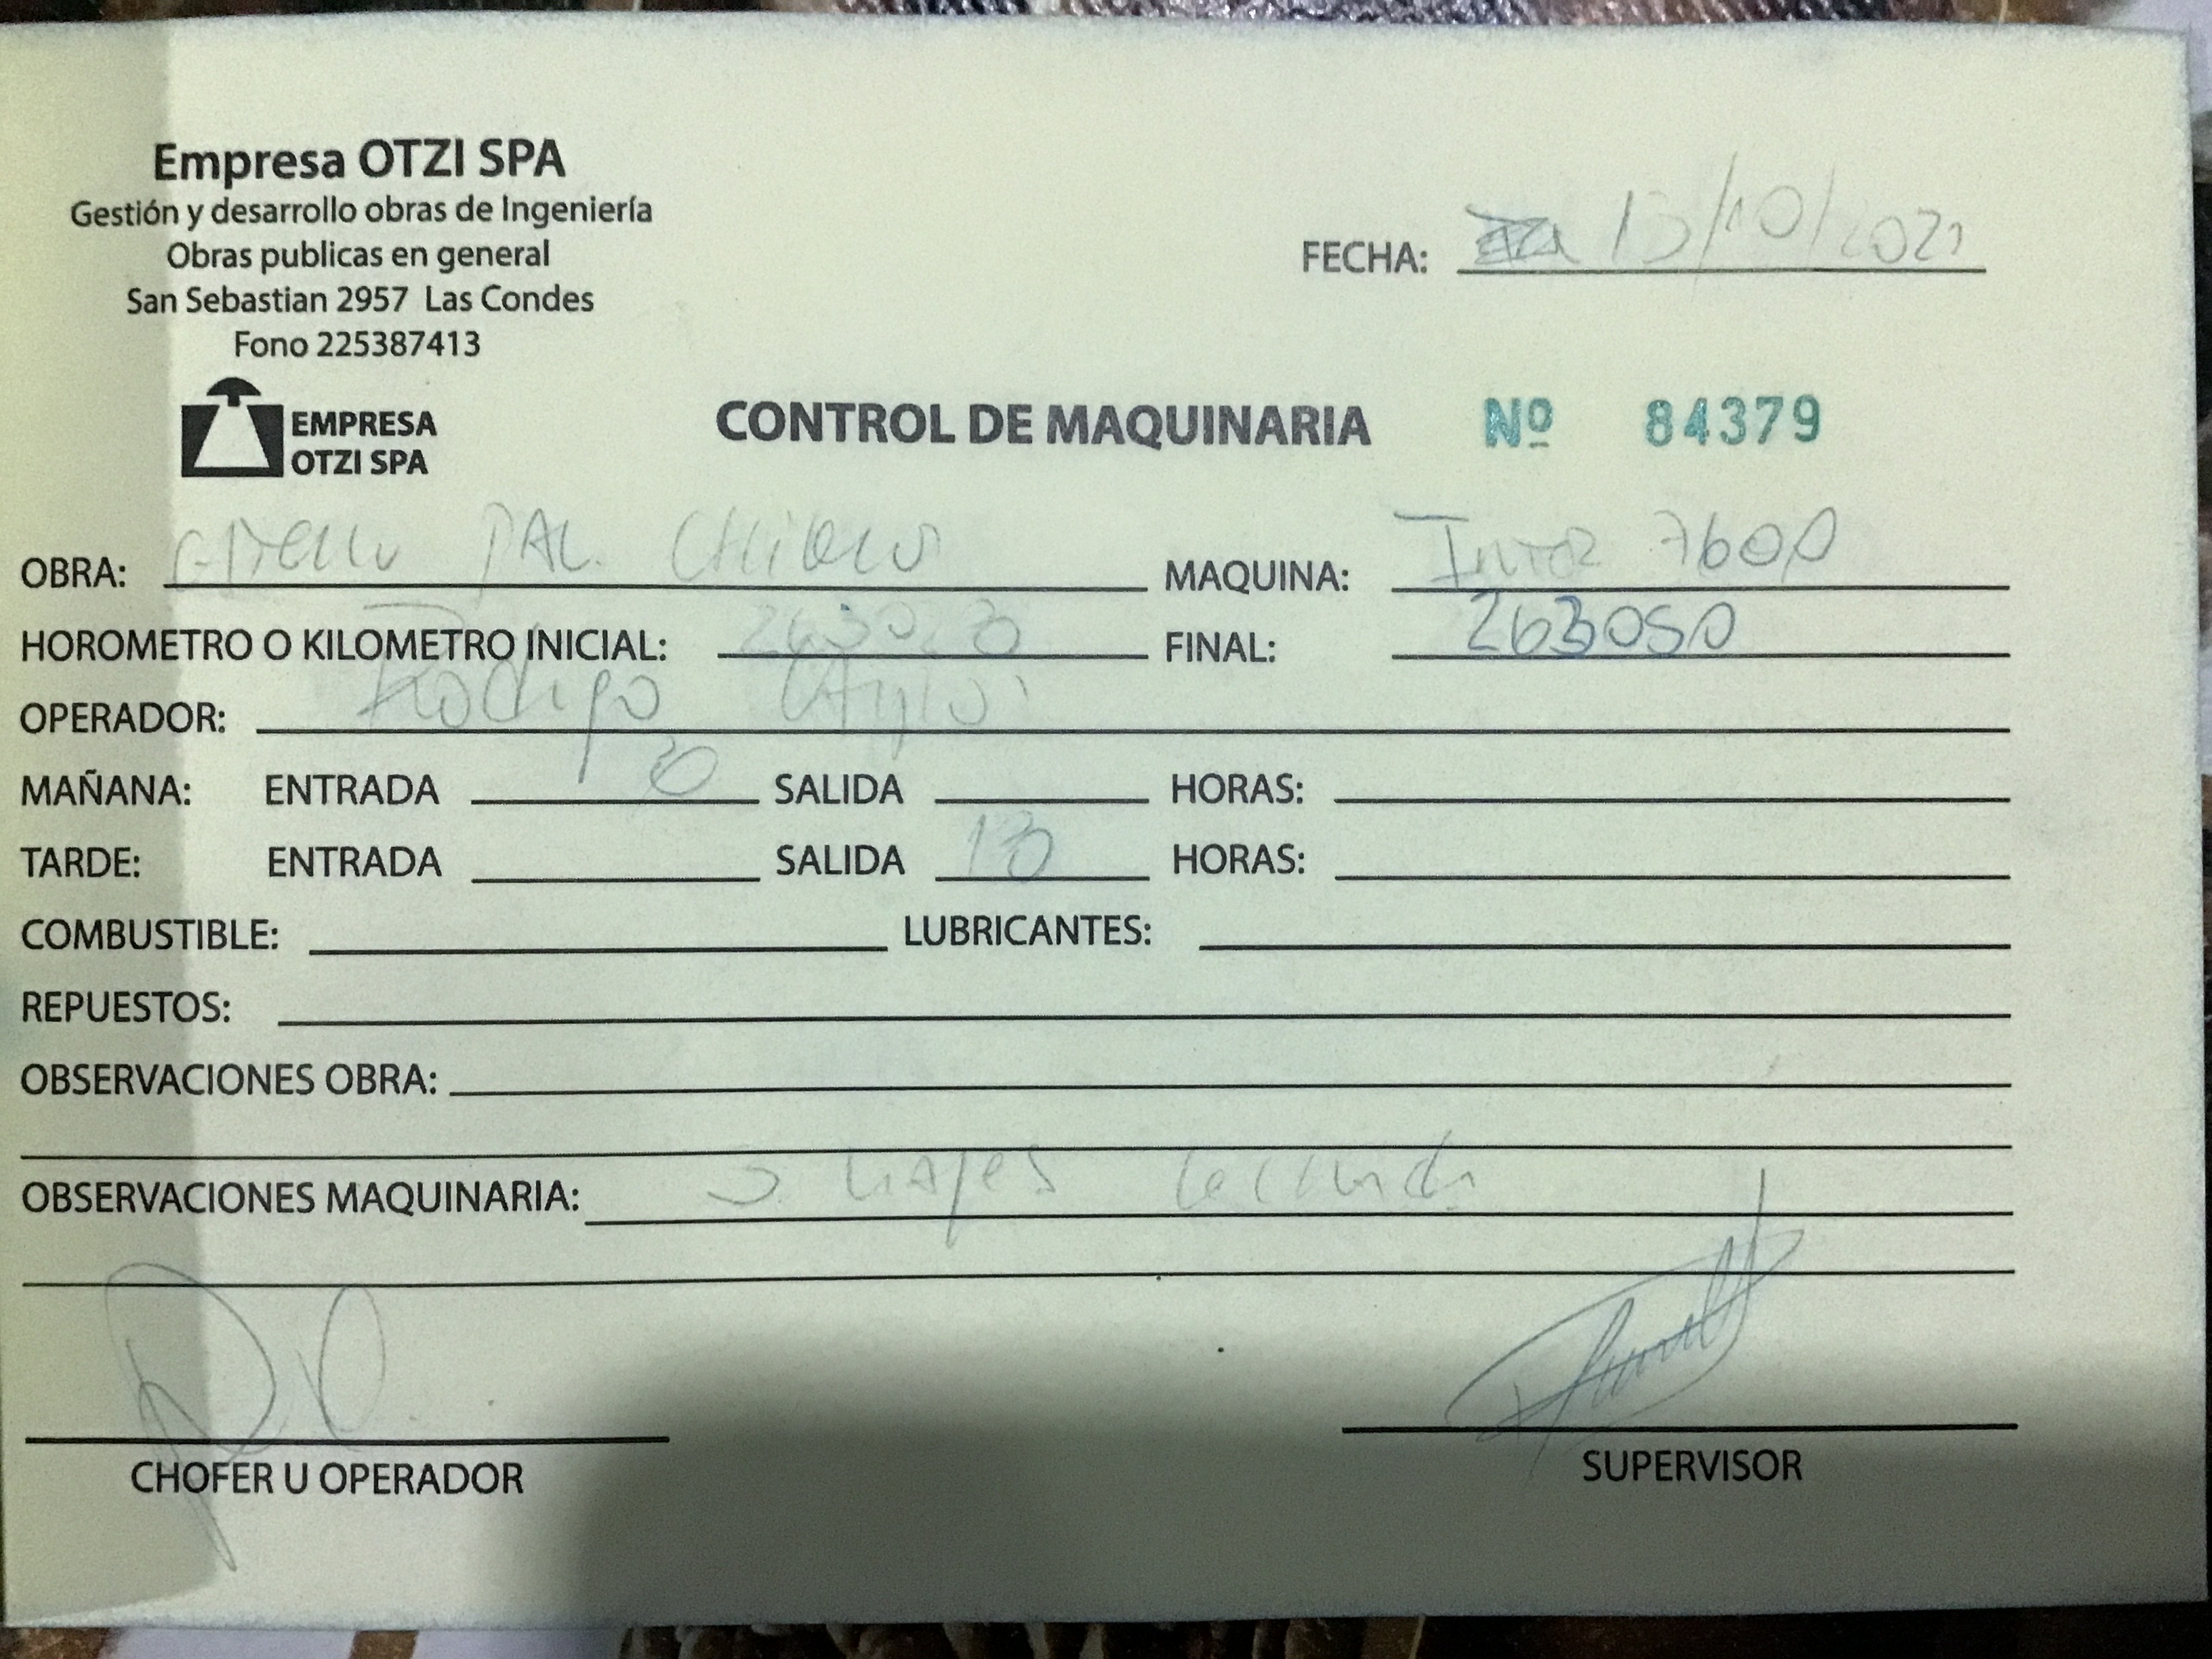 Empresa OTZI SPA
Gestión y desarrollo obras de Ingeniería
Obras publicas en general
San Sebastian 2957 Las Condes
Fono 225387413
FECHA: 13/10/2021
EMPRESA
OTZI SPA
CONTROL DE MAQUINARIA Nº 84379
OBRA: MAQUINA: Inter 7600
HOROMETRO O KILOMETRO INICIAL: FINAL: 263050
OPERADOR: Rodrigo
MAÑANA: ENTRADA SALIDA HORAS:
TARDE: ENTRADA SALIDA HORAS:
COMBUSTIBLE: LUBRICANTES:
REPUESTOS:
OBSERVACIONES OBRA:
OBSERVACIONES MAQUINARIA: viajes
CHOFER U OPERADOR
SUPERVISOR